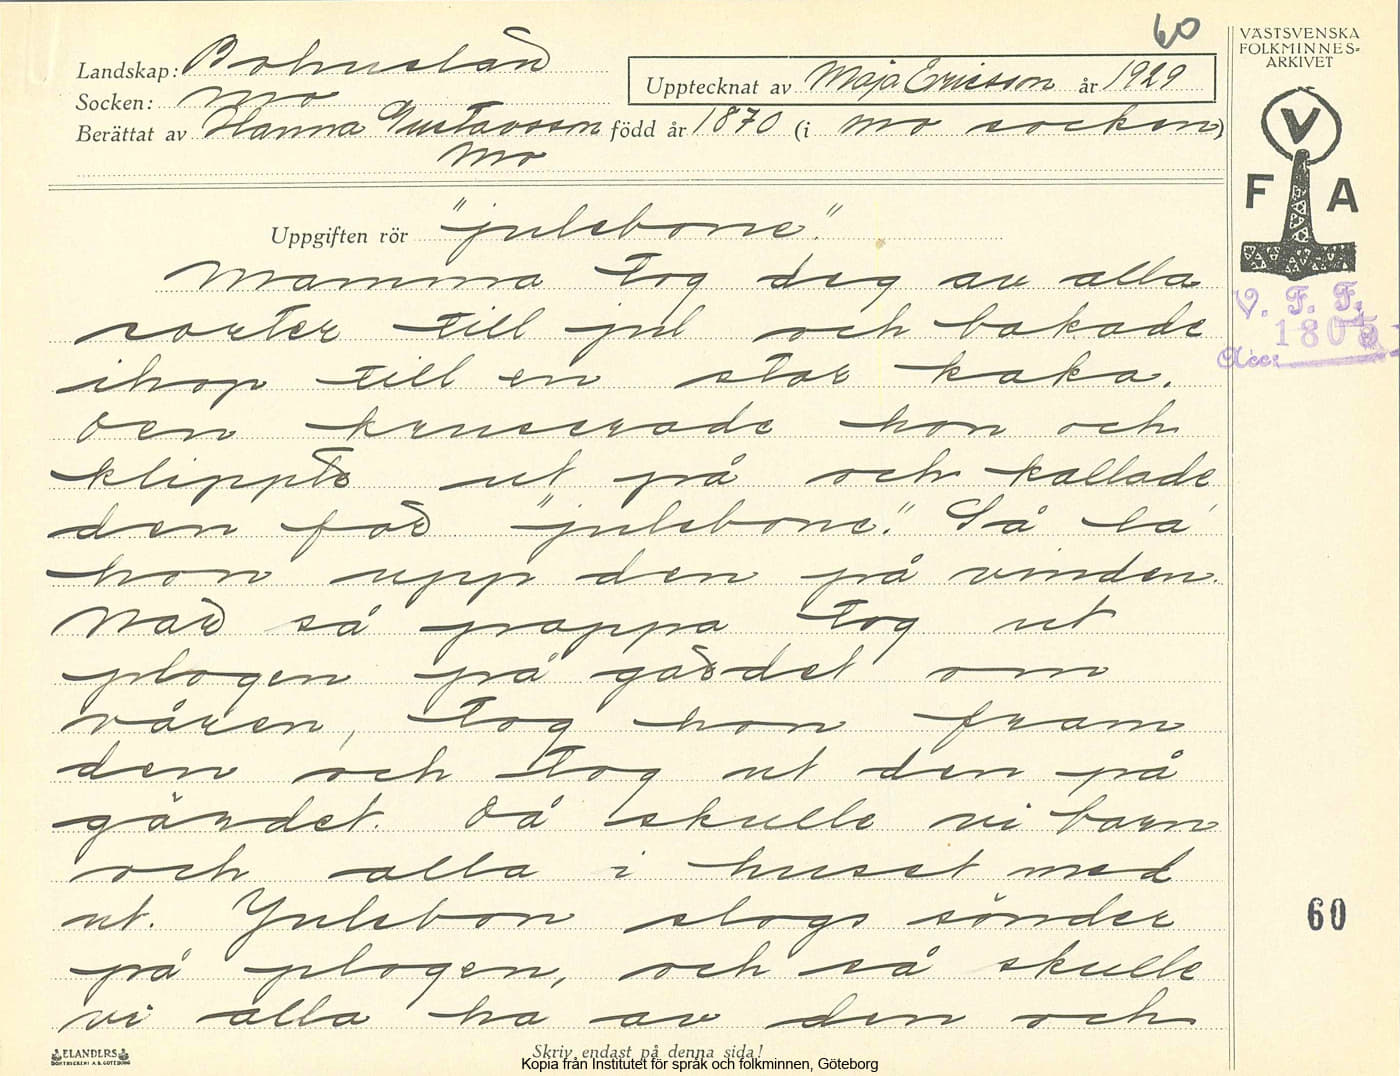 60
VÄSTSVENSKA
FOLKMINNES-
ARKIVET
Landskap: Bohuslän
Socken: Mo
Upptecknat av Maja Ericsson år 1929
Berättat av Hanna Gustavsson född år 1870 (i Mo socken)
Mo
V
F A
Uppgiften rör "julebone".
Mamma tog deg av alla
sorter till jul och bakade
ihop till en stor kaka.
Den kruserade hon och
klippte ut på och kallade
den för "julebone". Så la'
hon upp den på vinden.
När så pappa tog ut
plogen på gärdet om
våren, tog hon fram
den och tog ut den på
gärdet. Då skulle vi barn
och alla i huset med
ut. Julebon slogs sönder
på plogen, och så skulle
vi alla ha av den och
V. F. F.
1805
Acc:
60
ELANDERS
BOKTRYCKERI A.B. GÖTEBORG
Skriv endast på denna sida!
Kopia från Institutet för språk och folkminnen, Göteborg